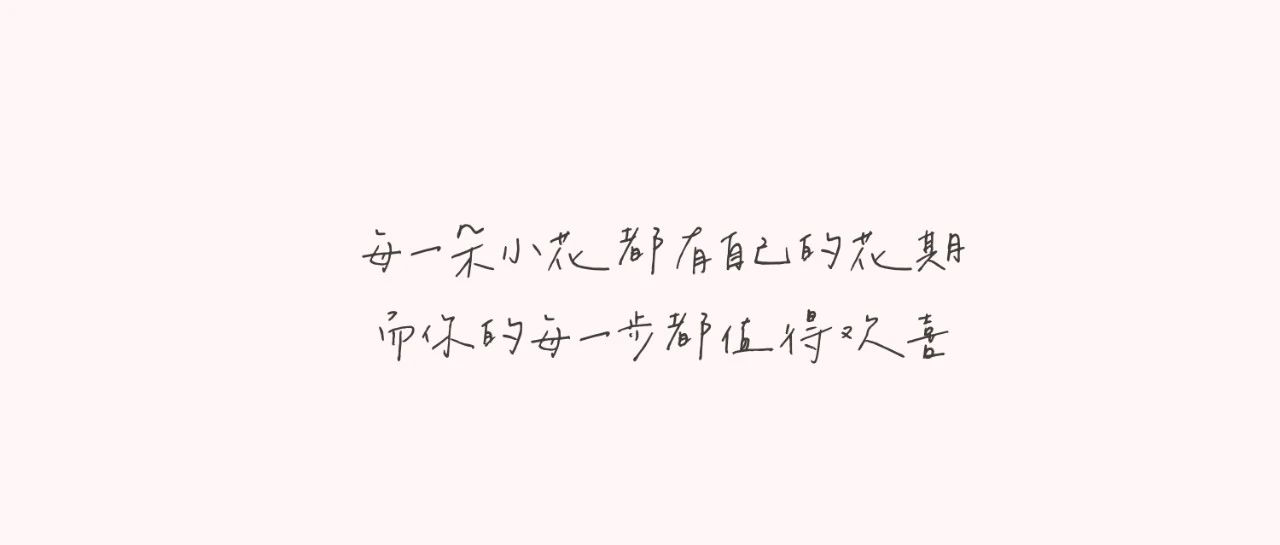 每一朵小花都有自己的花期
而你的每一步都值得欢喜